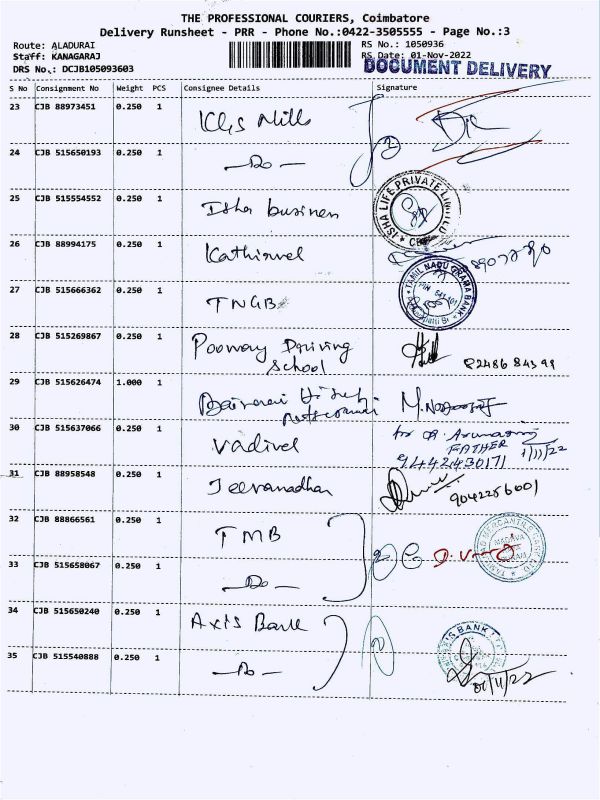 THE PROFESSIONAL COURIERS, Coimbatore
Delivery Runsheet - PRR - Phone No.:0422-3505555 - Page No.:3
Route: ALADURAI
Staff: KANAGARAJ
DRS No.: DCJB105093603
RS No.: 1050936
RS Date: 01-Nov-2022
DOCUMENT DELIVERY
S No Consignment No Weight PCS Consignee Details Signature
23 CJB 88973451 0.250 1 Mills
24 CJB 515650193 0.250 1 — Do —
25 CJB 515554552 0.250 1 Isha business
ISHA LIFE PRIVATE LIMITED
26 CJB 88994175 0.250 1 Kathirvel
27 CJB 515666362 0.250 1 TNGB
TAMIL NADU GRAMA BANK
28 CJB 515269867 0.250 1 Driving
School 82486 84399
29 CJB 515626474 1.000 1
30 CJB 515637066 0.250 1 Vadivel
FATHER 1/11/22
9442430171
31 CJB 88958548 0.250 1 Jeevanadhan 9042256001
32 CJB 88866561 0.250 1 TMB
33 CJB 515658067 0.250 1 — Do —
34 CJB 515650240 0.250 1 Axis Bank
AXIS BANK
35 CJB 515540888 0.250 1 — Do —
01/11/22